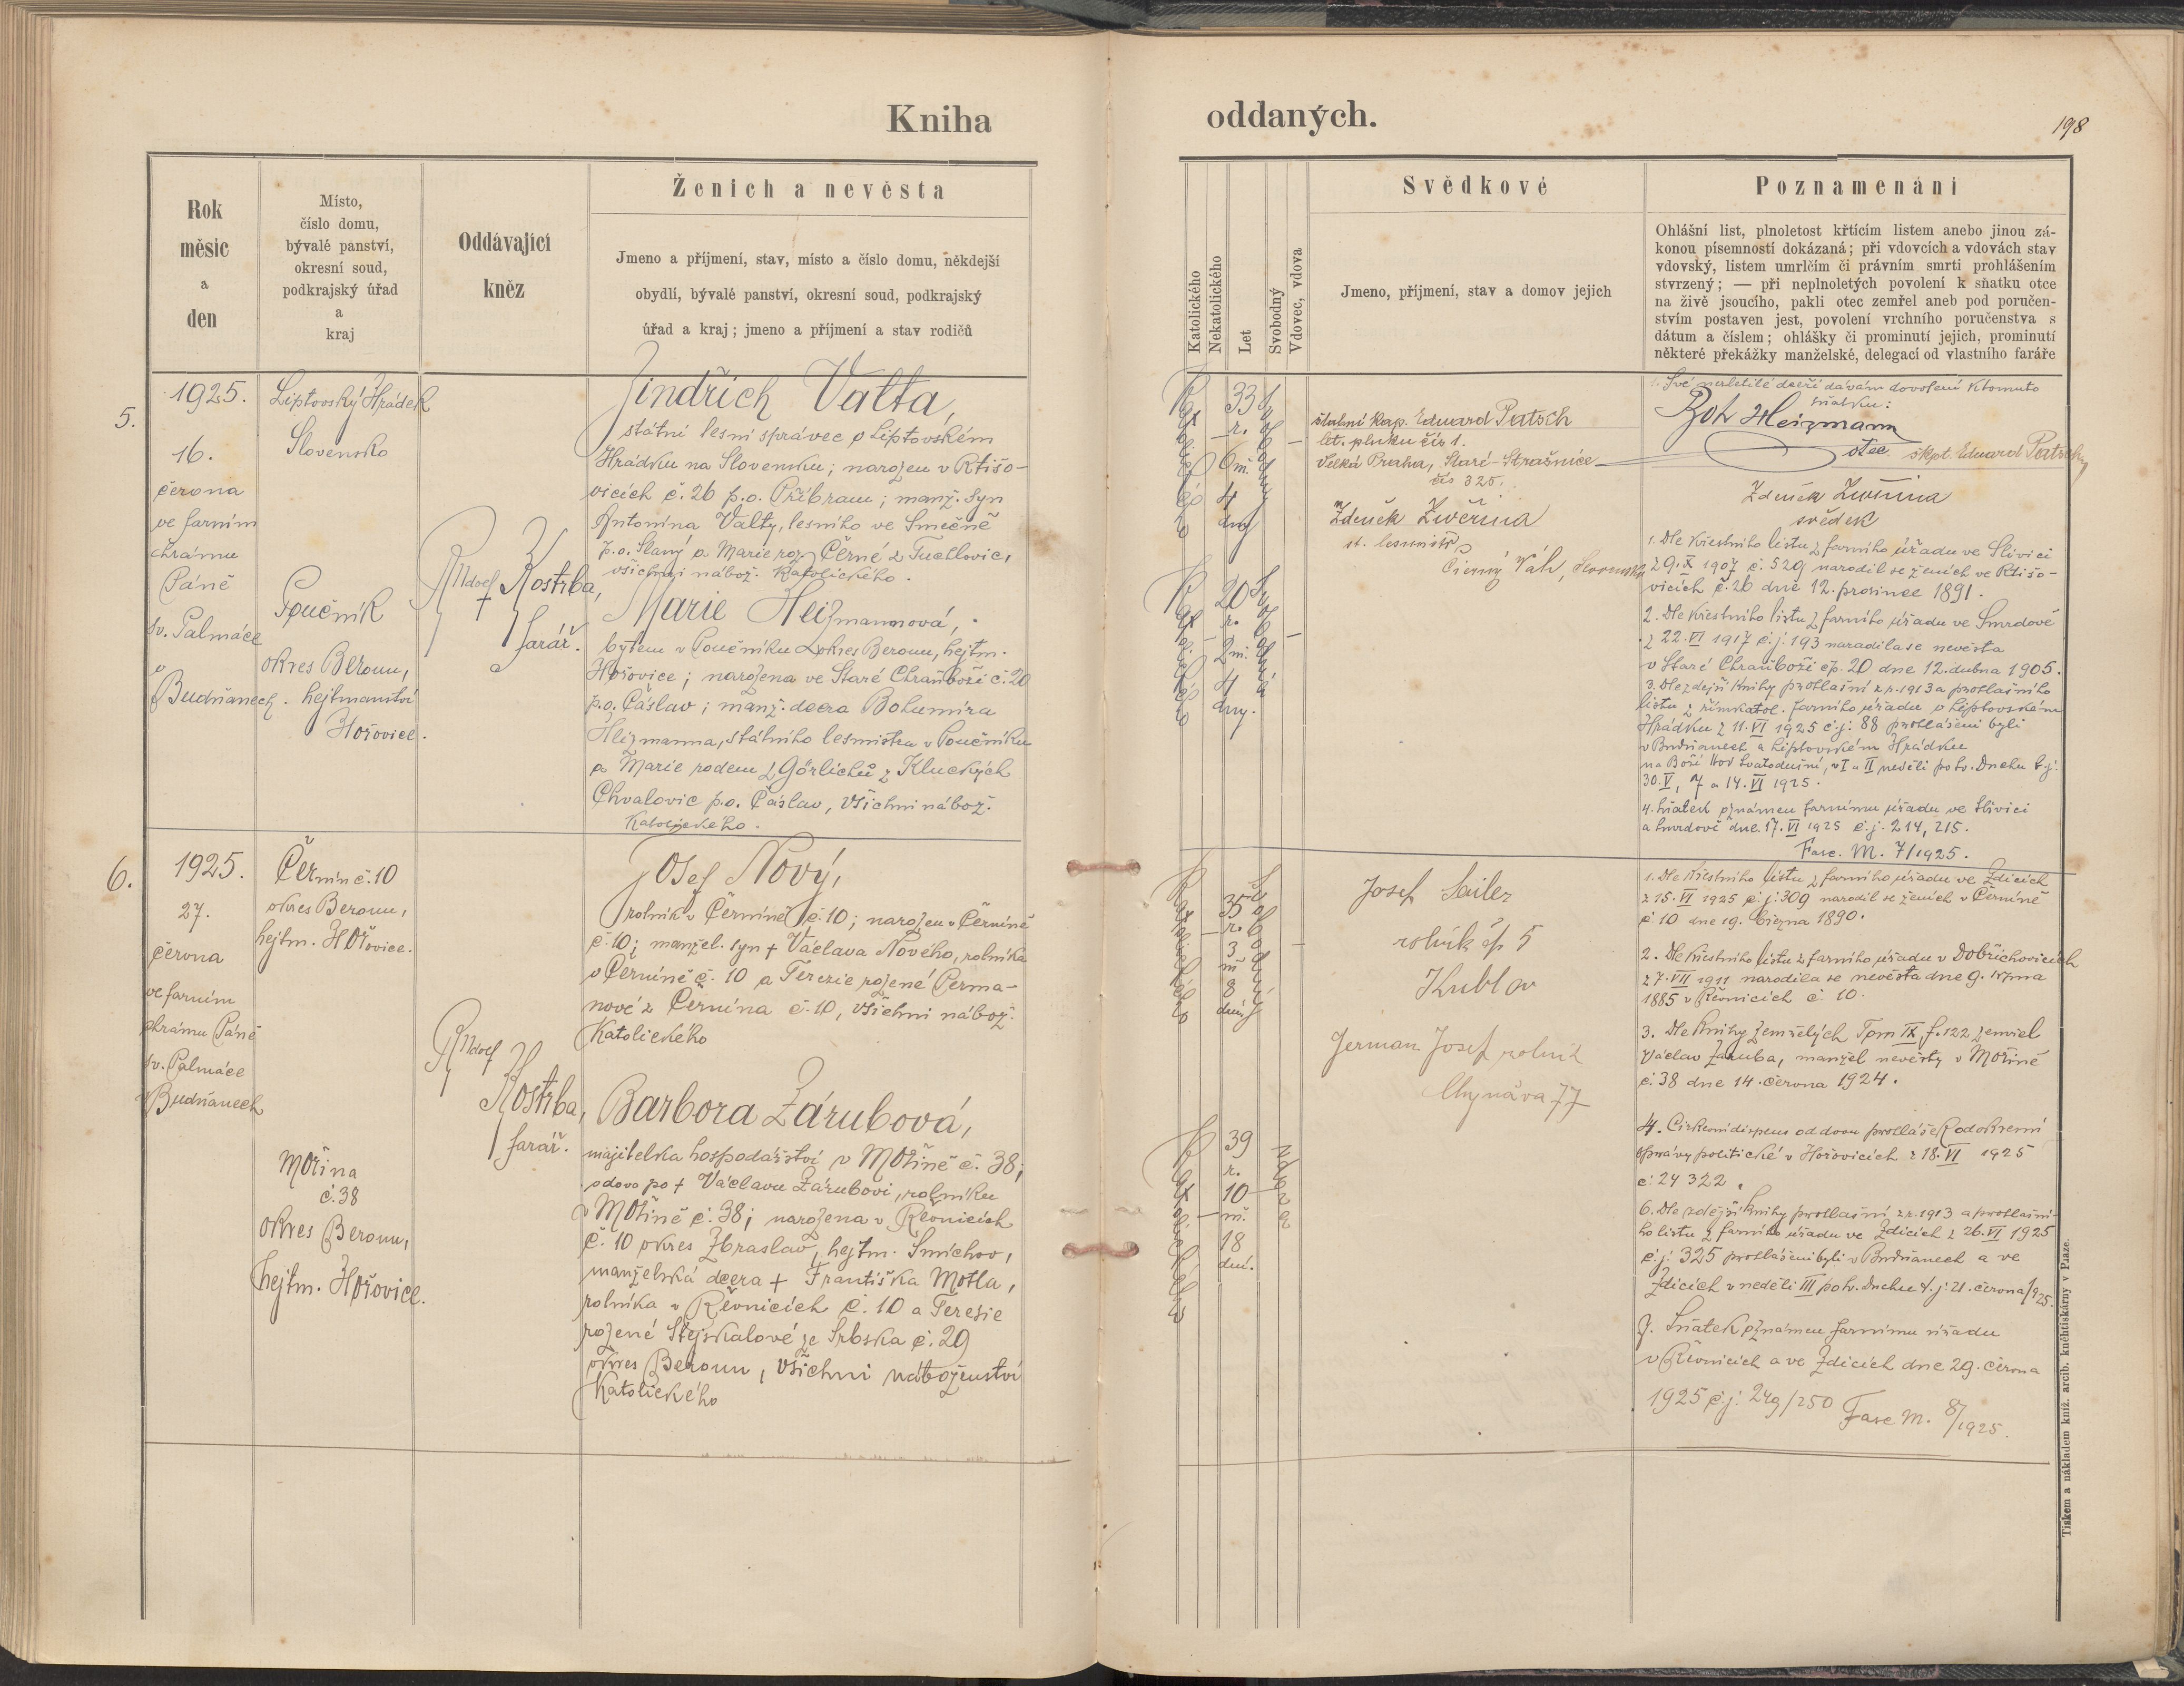 Kniha
oddaných.
198
Rok
měsíc
a
den
Místo,
číslo domu,
bývalé panství,
okresní soud,
podkrajský úřad
a
kraj
Oddávající
kněz
Ženich a nevěsta
Jmeno a příjmení, stav, místo a číslo domu, někdejší
obydlí, bývalé panství, okresní soud, podkrajský
úřad a kraj; jmeno a příjmení a stav rodičů
Katolického
Nekatolického
Let
Svobodný
Vdovec, vdova
Svědkové
Jmeno, příjmení, stav a domov jejich
Poznamenání
Ohlášní list, plnoletost křtícím listem anebo jinou zá-
konou písemností dokázaná; při vdovcích a vdovách stav
vdovský, listem umrlčím či právním smrti prohlášením
stvrzený; — při neplnoletých povolení k sňatku otce
na živě jsoucího, pakli otec zemřel aneb pod poručen-
stvím postaven jest, povolení vrchního poručenstva s
dátum a číslem; ohlášky či prominutí jejich, prominutí
některé překážky manželské, delegací od vlastního faráře
5.
1925.
16.
června
ve farním
chrámu
Páně
sv. Palmáce
v
Budňanech.
Liptovský Hrádek
Slovensko
Poučník
okres Beroun,
hejtmanství
Hořovice.
Rudolf Kostrba,
farář.
Jindřich Valta,
státní lesní správce v Liptovském
Hrádku na Slovensku; narozen v Rtišo-
vicích č. 26 p.o. Příbram; manž. syn
Antonína Valty, lesního ve Smečně
p.o. Slaný a Marie roz. Černé z Tuchlovic,
všichni nábož. katolického.
Marie Heizmannová,
bytem v Poučníku okres Beroun, hejtm.
Hořovice; narozena ve Staré Chraňboži č. 20
p.o. Čáslav; manž. dcera Bohumíra
Heizmanna, státního lesmistra v Poučníku
a Marie rodem z Görlichů z Kluckých
Chvalovic p.o. Čáslav, všichni nábož.
katolického.
Katolického
33
r.
6 m.
4
dny
Svobodný
Katolického
20
r.
2 m.
4
dny.
Svobodná
štábní kap. Eduard Patsch
let. pluku čís 1.
Velká Praha, Staré-Strašnice
čís 325.
Zdeněk Zvěřina
st. lesmistr
Čierný Váh, Slovensko
1. Své nezletilé dceři dávám dovolení k tomuto
sňatku:
Boh Heizmann
otec
škpt. Eduard Patsch
Zdeněk Zvěřina
svědek
1. Dle křestního listu z farního úřadu ve Slivici
z 9. X 1907 č. 529 narodil se ženich ve Rtišo-
vicích č. 26 dne 12. prosince 1891.
2. Dle křestního listu z farního úřadu ve Smrdově
z 22. VI 1917 č.j. 193 narodila se nevěsta
v Staré Chraňboži čp. 20 dne 12. dubna 1905.
3. Dle zdejší knihy prohlašní z r. 1913 a prohlašního
listu z římskatol. farního úřadu v Liptovském
Hrádku z 11. VI 1925 č.j. 88 prohlášeni byli
v Budňanech a Liptovském Hrádku
na Boží hod svatodušní, v I a II neděli po sv. Duchu t.j.
30. V, 7 a 14. VI 1925.
4. Sňatek oznámen farnímu úřadu ve Slivici
a Smrdově dne 17. VI 1925 č.j. 214, 215.
Fasc. M. 7/1925.
6.
1925.
27.
června
ve farním
chrámu Páně
sv. Palmáce
v Budňanech
Černín č. 10
okres Beroun,
hejtm. Hořovice.
Mořina
č. 38
okres Beroun,
hejtm. Hořovice.
Rudolf
Kostrba,
farář.
Josef Nový,
rolník v Černíně č. 10; narozen v Černíně
č. 10; manžel. syn † Václava Nového, rolníka
v Černíně č. 10 a Terezie rozené Perma-
nové z Černína č. 10, všichni nábož.
katolického
Barbora Zárubová,
majitelka hospodářství v Mořině č. 38;
vdova po † Václavu Zárubovi, rolníku
v Mořině č. 38; narozena v Řevnicích
č. 10 okres Zbraslav, hejtm. Smíchov,
manželská dcera † Františka Motla,
rolníka v Řevnicích č. 10 a Terezie
rozené Stejskalové ze Srbska č. 29
okres Beroun, všichni náboženství
katolického
Katolického
35
r.
3
m
8
dní
Svobodný
Katolického
39
r.
10
m.
18
dní.
vdova
Josef Sailer
rolník čp 5
Kublov
Jerman Josef rolník
Chyňava 77
1. Dle křestního listu z farního úřadu ve Zdicích
z 15. VI 1925 č.j. 309 narodil se ženich v Černíně
č 10 dne 19. března 1890.
2. Dle křestního listu z farního úřadu v Dobřichovicích
z 7. VII 1911 narodila se nevěsta dne 9. srpna
1885 v Řevnicích č. 10.
3. Dle knihy zemřelých Tom IX f. 122 zemřel
Václav Záruba, manžel nevěsty v Mořině
č 38 dne 14. června 1924.
4. Církevní dispens od dvou prohlášek od okresní
správy politické v Hořovicích z 18. VI 1925
č. 24 322.
6. Dle zdejší knihy prohlašní z r. 1913 a prohlašní-
ho listu z farního úřadu ve Zdicích z 26. VI 1925
č.j. 325 prohlášeni byli v Budňanech a ve
Zdicích v neděli III po sv. Duchu t.j. 21. června 1925.
7. Sňatek oznámen farnímu úřadu
v Řevnicích a ve Zdicích dne 29. června
1925 č.j. 249/250
Fasc M. 8/1925.
Tiskem a nákladem kníž. arcib. kněhtiskárny v Praze.